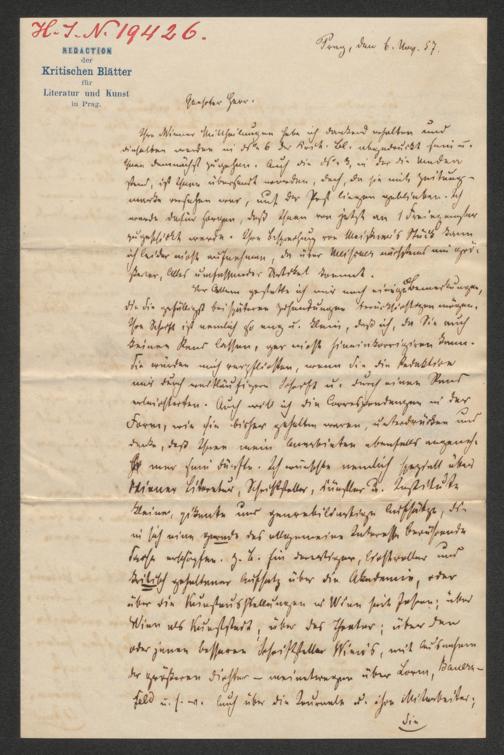 H. I. N. 19426.
REDACTION
der
Kritischen Blätter
für
Literatur und Kunst
in Prag.
Prag, den 6. Aug. 57.
Geehrter Herr.
Ihre Wiener Mittheilungen habe ich dankend erhalten und
dieselben werden in 6 der Krit. Bl. abgedruckt sein u.
Ihnen demnächst zugehen. Auch die in der die
stand, ist Ihnen übersandt worden, doch, da sie mit Zeitungs-
marke versehen war, auf der Post liegen geblieben. Ich
werde dafür sorgen, daß Ihnen von jetzt an 1 Freiexemplar
zugeschickt werde. Ihre Besprechung von Meißner's Stück kann
ich leider nicht aufnehmen, da über Meißner nächstens ein größ-
ßerer, Alles umfassender Artikel kommt.
Vor Allem gestatte ich mir noch einige Bemerkungen,
die Sie gefälligst bei späteren Zusendungen berücksichtigen mögen.
Ihre Schrift ist nemlich so eng u. klein, daß ich, da Sie auch
keinen Rand lassen, gar nicht hineinkorrigiren kann.
Sie würden mich verpflichten, wenn Sie die Redaktion
mir durch weitläufigere Schrift u. durch einen Rand
erleichterten. Auch will ich die Correspondenzen in der
Form, wie sie bisher gehalten waren, unterdrücken und
denke, daß Ihnen mein Anerbieten ebenfalls angeneh-
mer sein dürfte. Ich wünschte nemlich speziell über
Wiener Literatur, Schriftsteller, Künstler u. Institute
kleine, pikante und genrebildartige Aufsätze, die
in sich eine gerade das allgemeine Interesse berührende
Farbe erschöpfen. Z. B. Ein derartiger, und
kritisch gehaltener Aufsatz über die Akademie, oder
über die Kunstausstellungen in Wien seit Jahren; über
Wien als Kunststadt; über das Theater; über den
oder jenen besseren Schriftsteller Wien's, mit Ausnahme
der größeren Dichter – meinetwegen über Lorm, Bauern-
feld u. s. w. Auch über die Journale u. ihre Mitarbeiter;
die